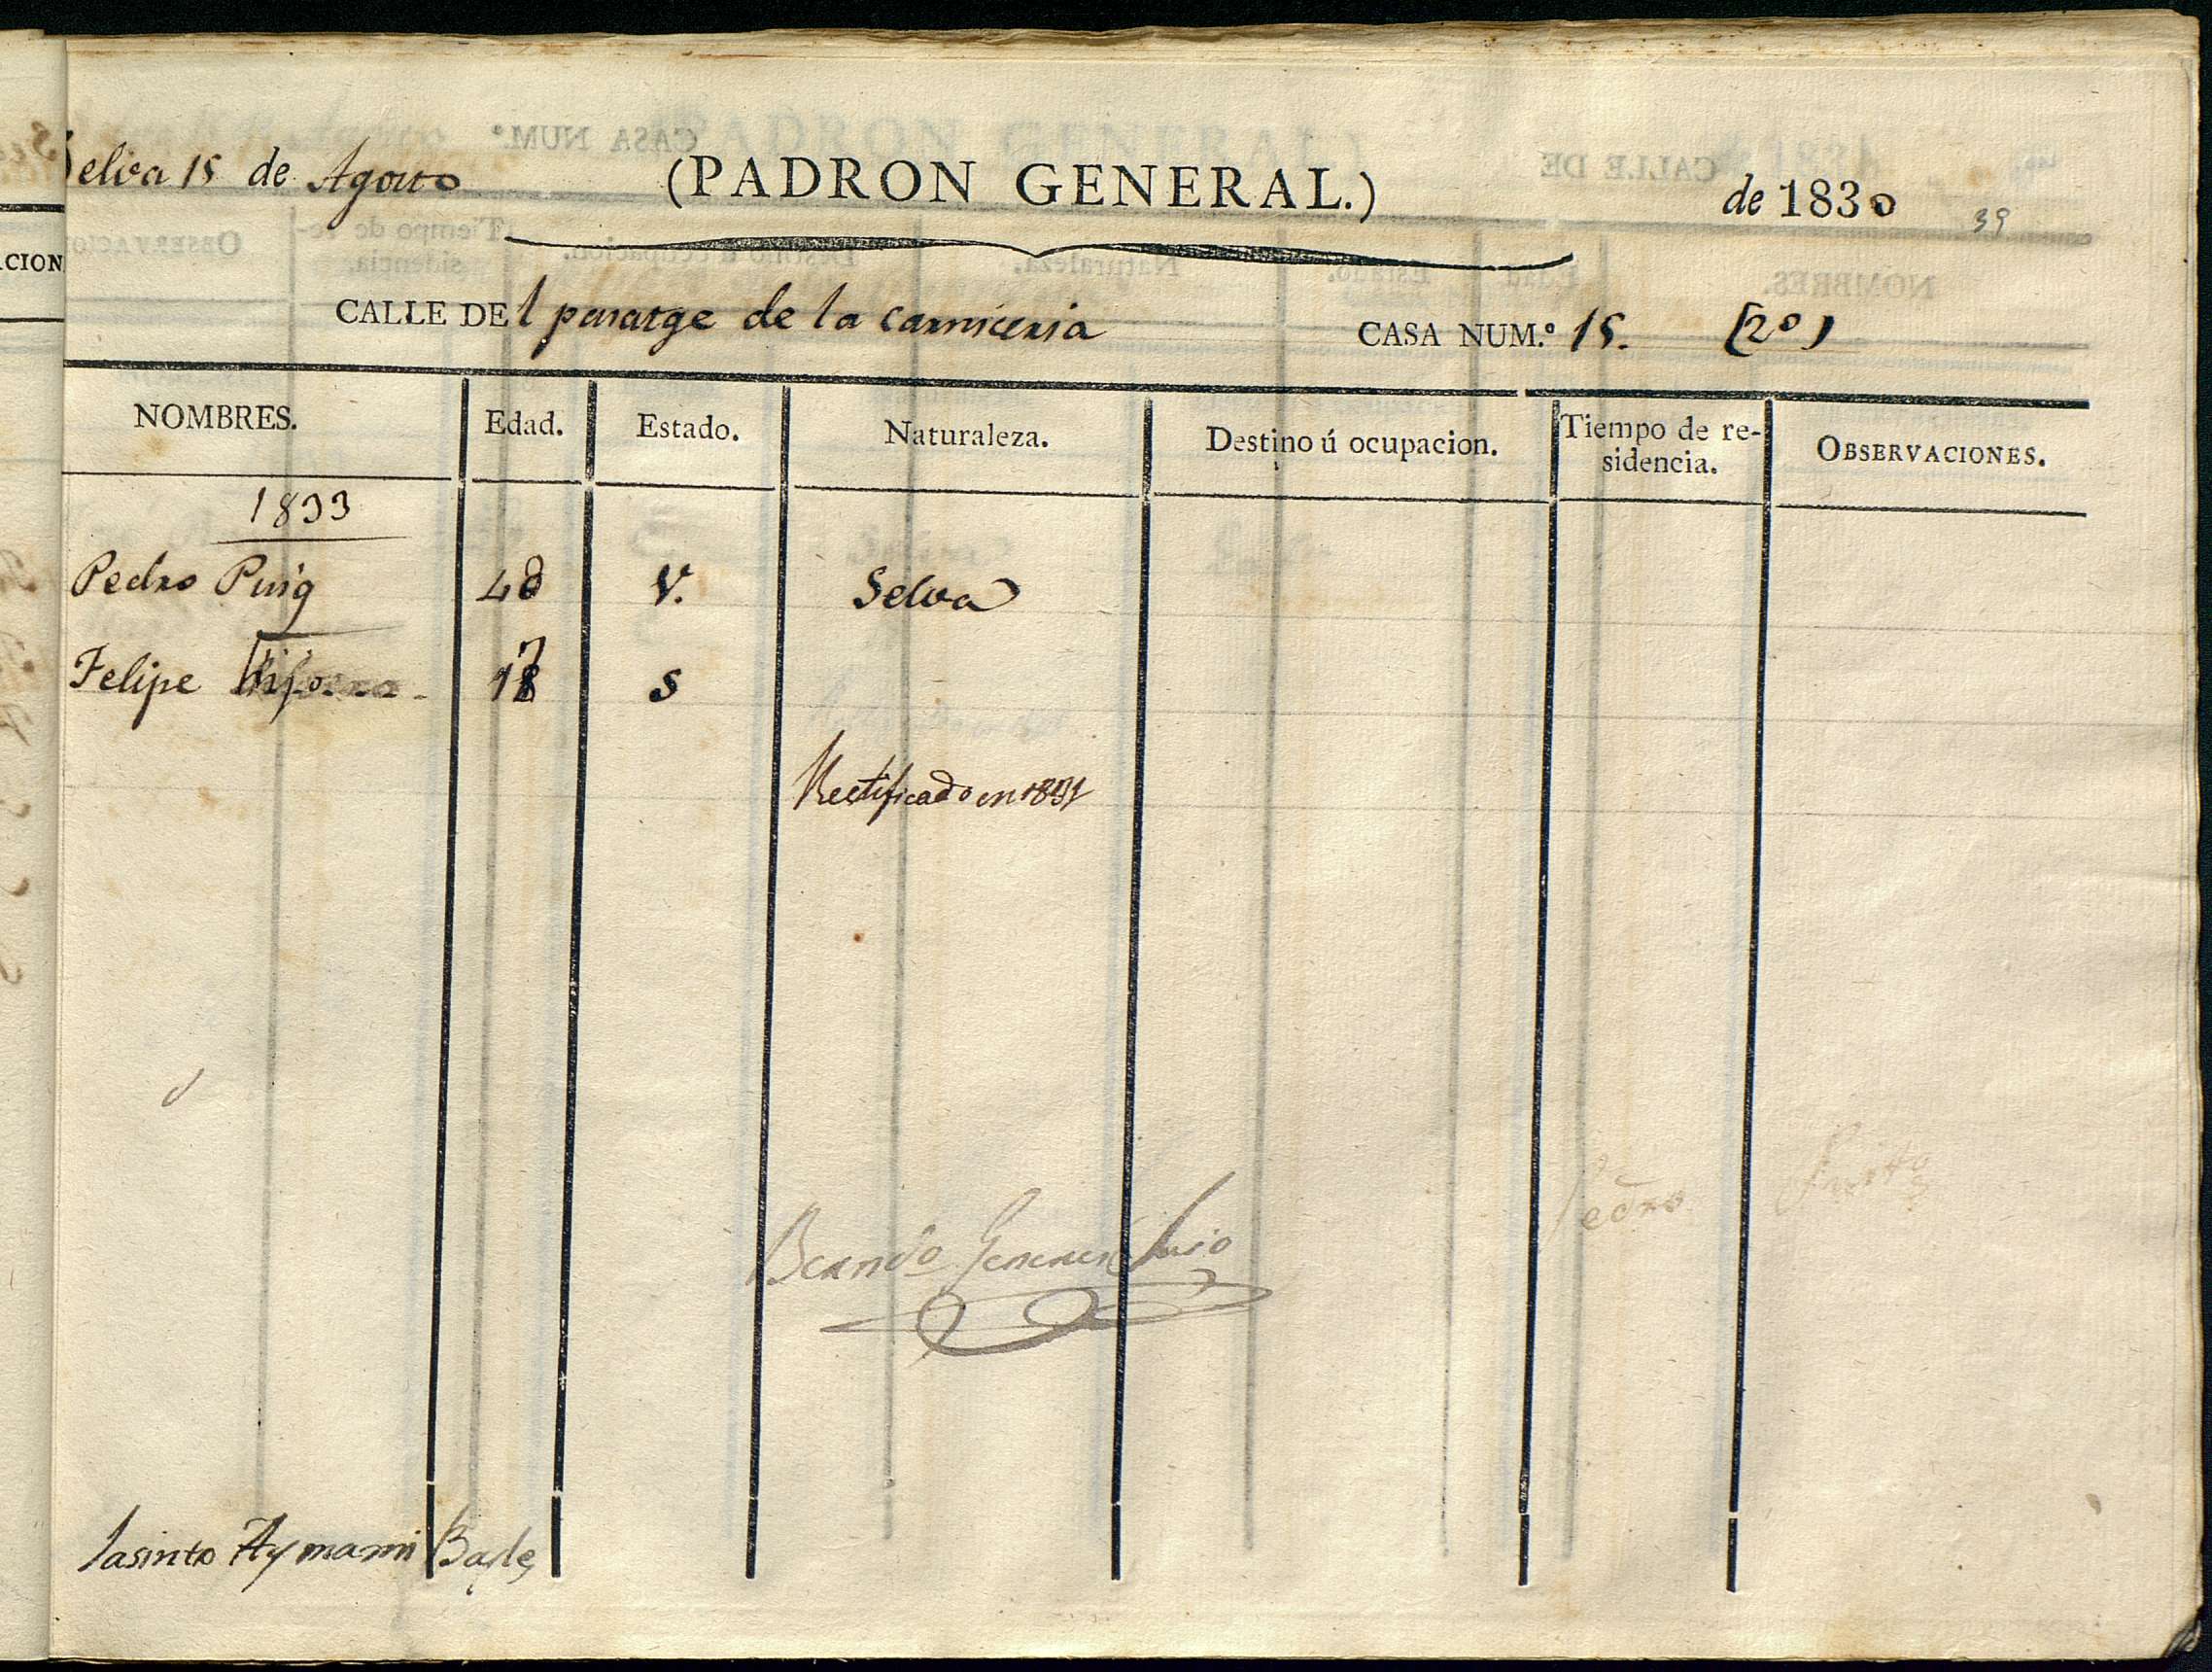 Selva 15 de Agosto (PADRON GENERAL.) de 1830
39
CALLE DEl paratge de la carniceria CASA NUM.º 15. (2º)
NOMBRES. Edad. Estado. Naturaleza. Destino ú ocupacion. Tiempo de residencia. OBSERVACIONES.
1833
Pedro Puig 48 V. Selva
Felipe hijo 17 S
Rectificado en 1831
Pedro
Jasinto Aymami Bayle